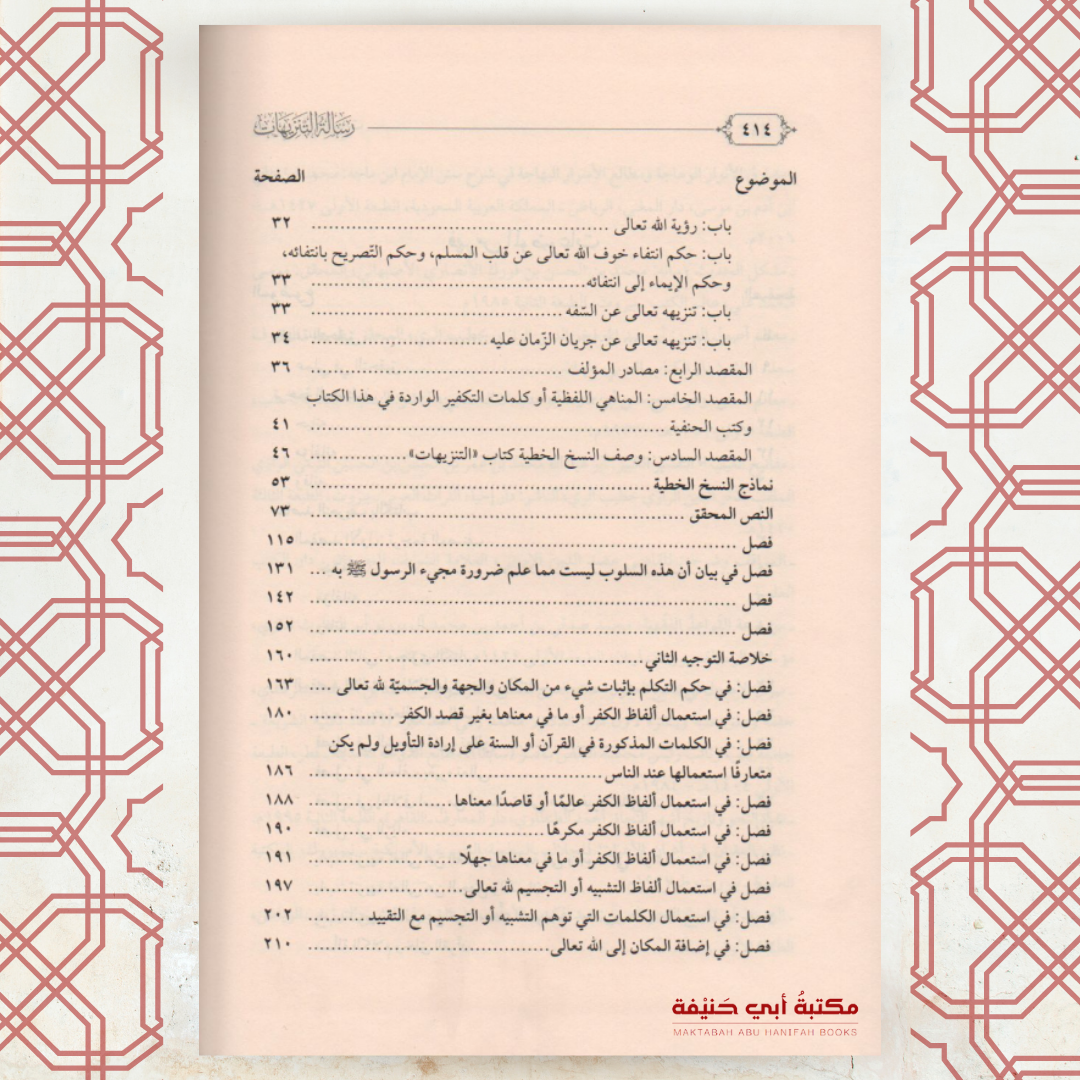 ٤١٤ رسالة التنزيهات
الموضوع الصفحة
باب: رؤية الله تعالى ........ ٣٢
باب: حكم انتفاء خوف الله تعالى عن قلب المسلم، وحكم التّصريح بانتفائه،
وحكم الإيماء إلى انتفائه ........ ٣٣
باب: تنزيهه تعالى عن السّفه ........ ٣٣
باب: تنزيهه تعالى عن جريان الزّمان عليه ........ ٣٤
المقصد الرابع: مصادر المؤلف ........ ٣٦
المقصد الخامس: المناهي اللفظية أو كلمات التكفير الواردة في هذا الكتاب
وكتب الحنفية ........ ٤١
المقصد السادس: وصف النسخ الخطية كتاب «التنزيهات» ........ ٤٦
نماذج النسخ الخطية ........ ٥٣
النص المحقق ........ ٧٣
فصل ........ ١١٥
فصل في بيان أن هذه السلوب ليست مما علم ضرورة مجيء الرسول ﷺ به ... ١٣١
فصل ........ ١٤٢
فصل ........ ١٥٢
خلاصة التوجيه الثاني ........ ١٦٠
فصل: في حكم التكلم بإثبات شيء من المكان والجهة والجسميّة لله تعالى ..... ١٦٣
فصل: في استعمال ألفاظ الكفر أو ما في معناها بغير قصد الكفر ........ ١٨٠
فصل: في الكلمات المذكورة في القرآن أو السنة على إرادة التأويل ولم يكن
متعارفًا استعمالها عند الناس ........ ١٨٦
فصل: في استعمال ألفاظ الكفر عالمًا أو قاصدًا معناها ........ ١٨٨
فصل: في استعمال ألفاظ الكفر مكرهًا ........ ١٩٠
فصل: في استعمال ألفاظ الكفر أو ما في معناها جهلًا ........ ١٩١
فصل في استعمال ألفاظ التشبيه أو التجسيم لله تعالى ........ ١٩٧
فصل: في استعمال الكلمات التي توهم التشبيه أو التجسيم مع التقييد ........ ٢٠٢
فصل: في إضافة المكان إلى الله تعالى ........ ٢١٠
مكتبةُ أبي حَنيْفة
MAKTABAH ABU HANIFAH BOOKS